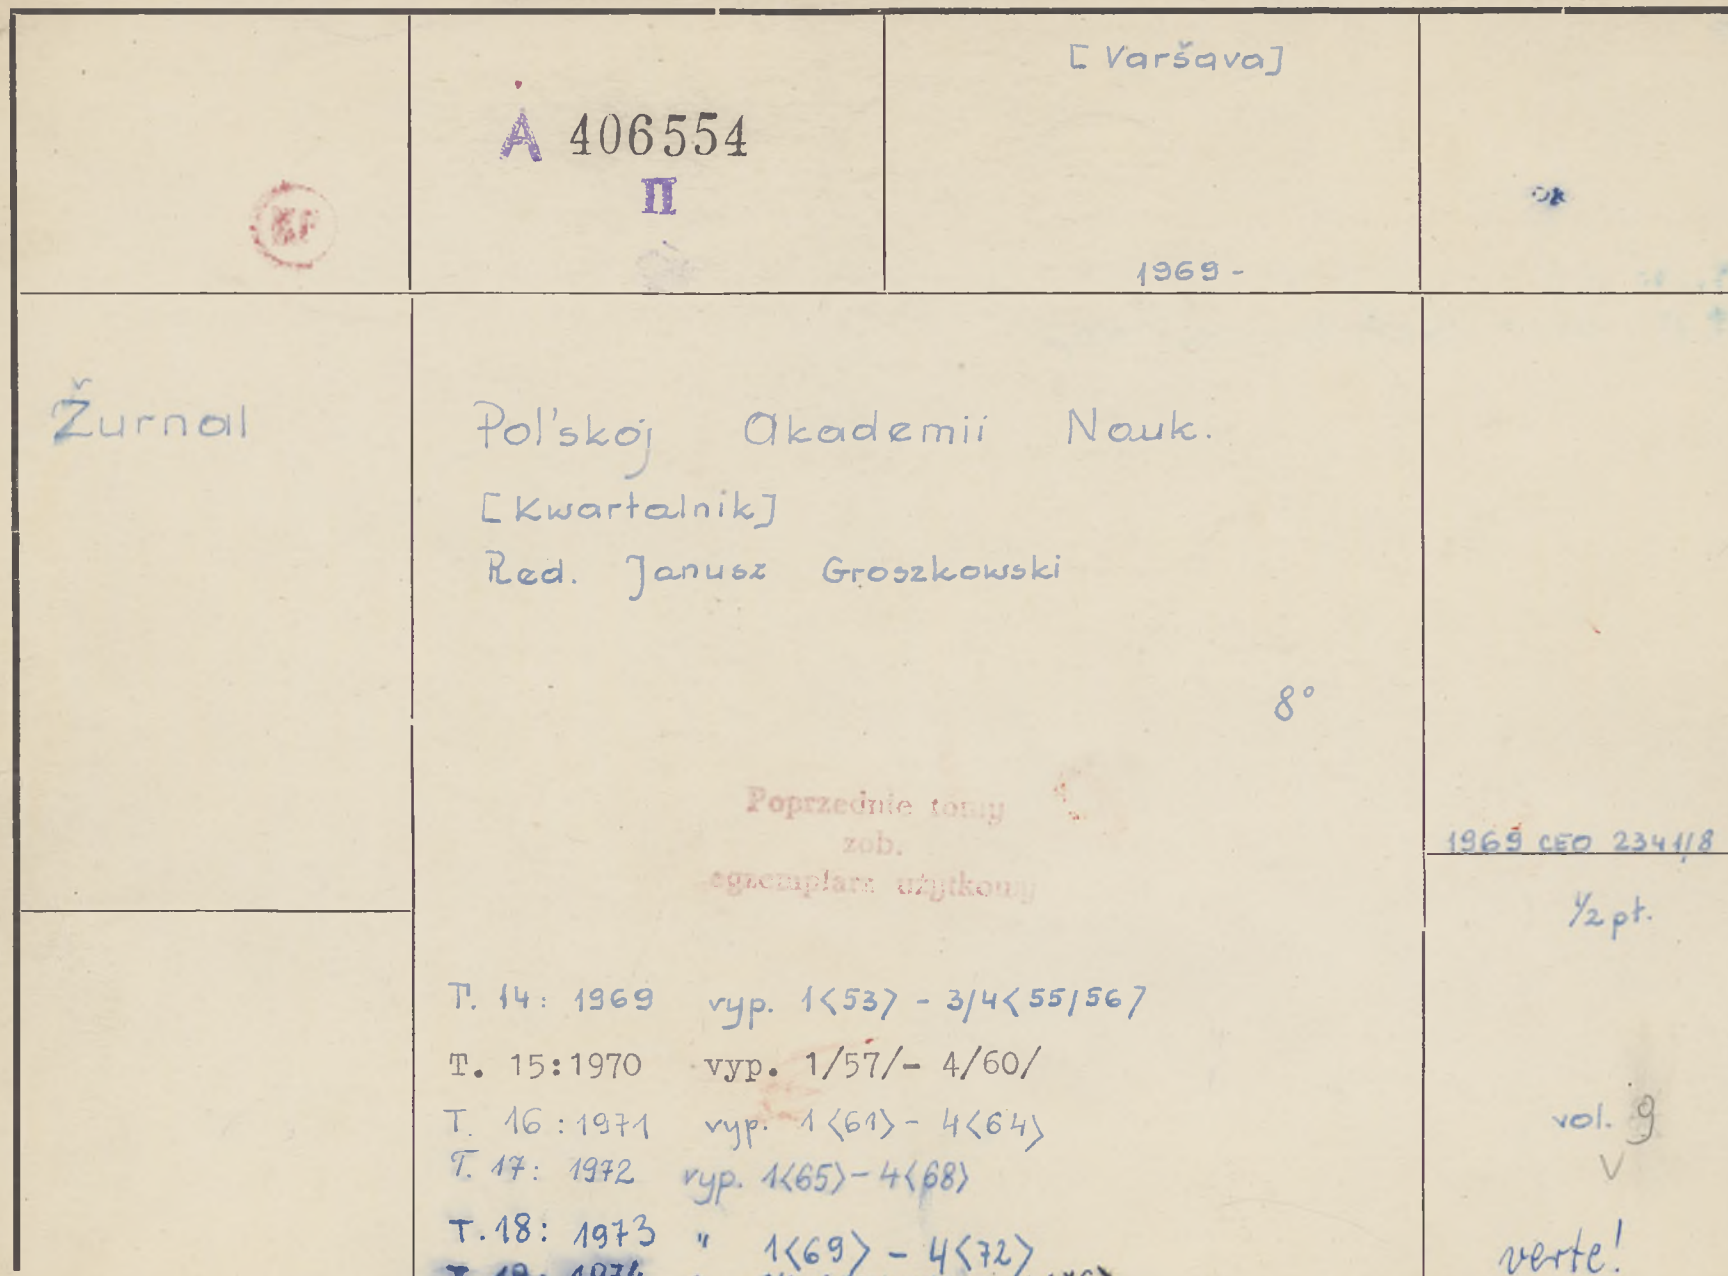 [Varšava]
A 406554
II
1969 -
Žurnal
Pol'skoj Akademii Nauk.
[Kwartalnik]
Red. Janusz Groszkowski
8°
Poprzednie tomy
zob.
egzemplarz użytkowy
1969 CEO 2341/8
1/2 pł.
T. 14: 1969 vyp. 1<53> - 3/4<55/56>
T. 15:1970 vyp. 1/57/- 4/60/
T. 16:1971 vyp. 1<61> - 4<64>
vol. 9
T. 17: 1972 vyp. 1<65> - 4<68>
T. 18: 1973 " 1<69> - 4<72>
verte!
T. 19: 1974